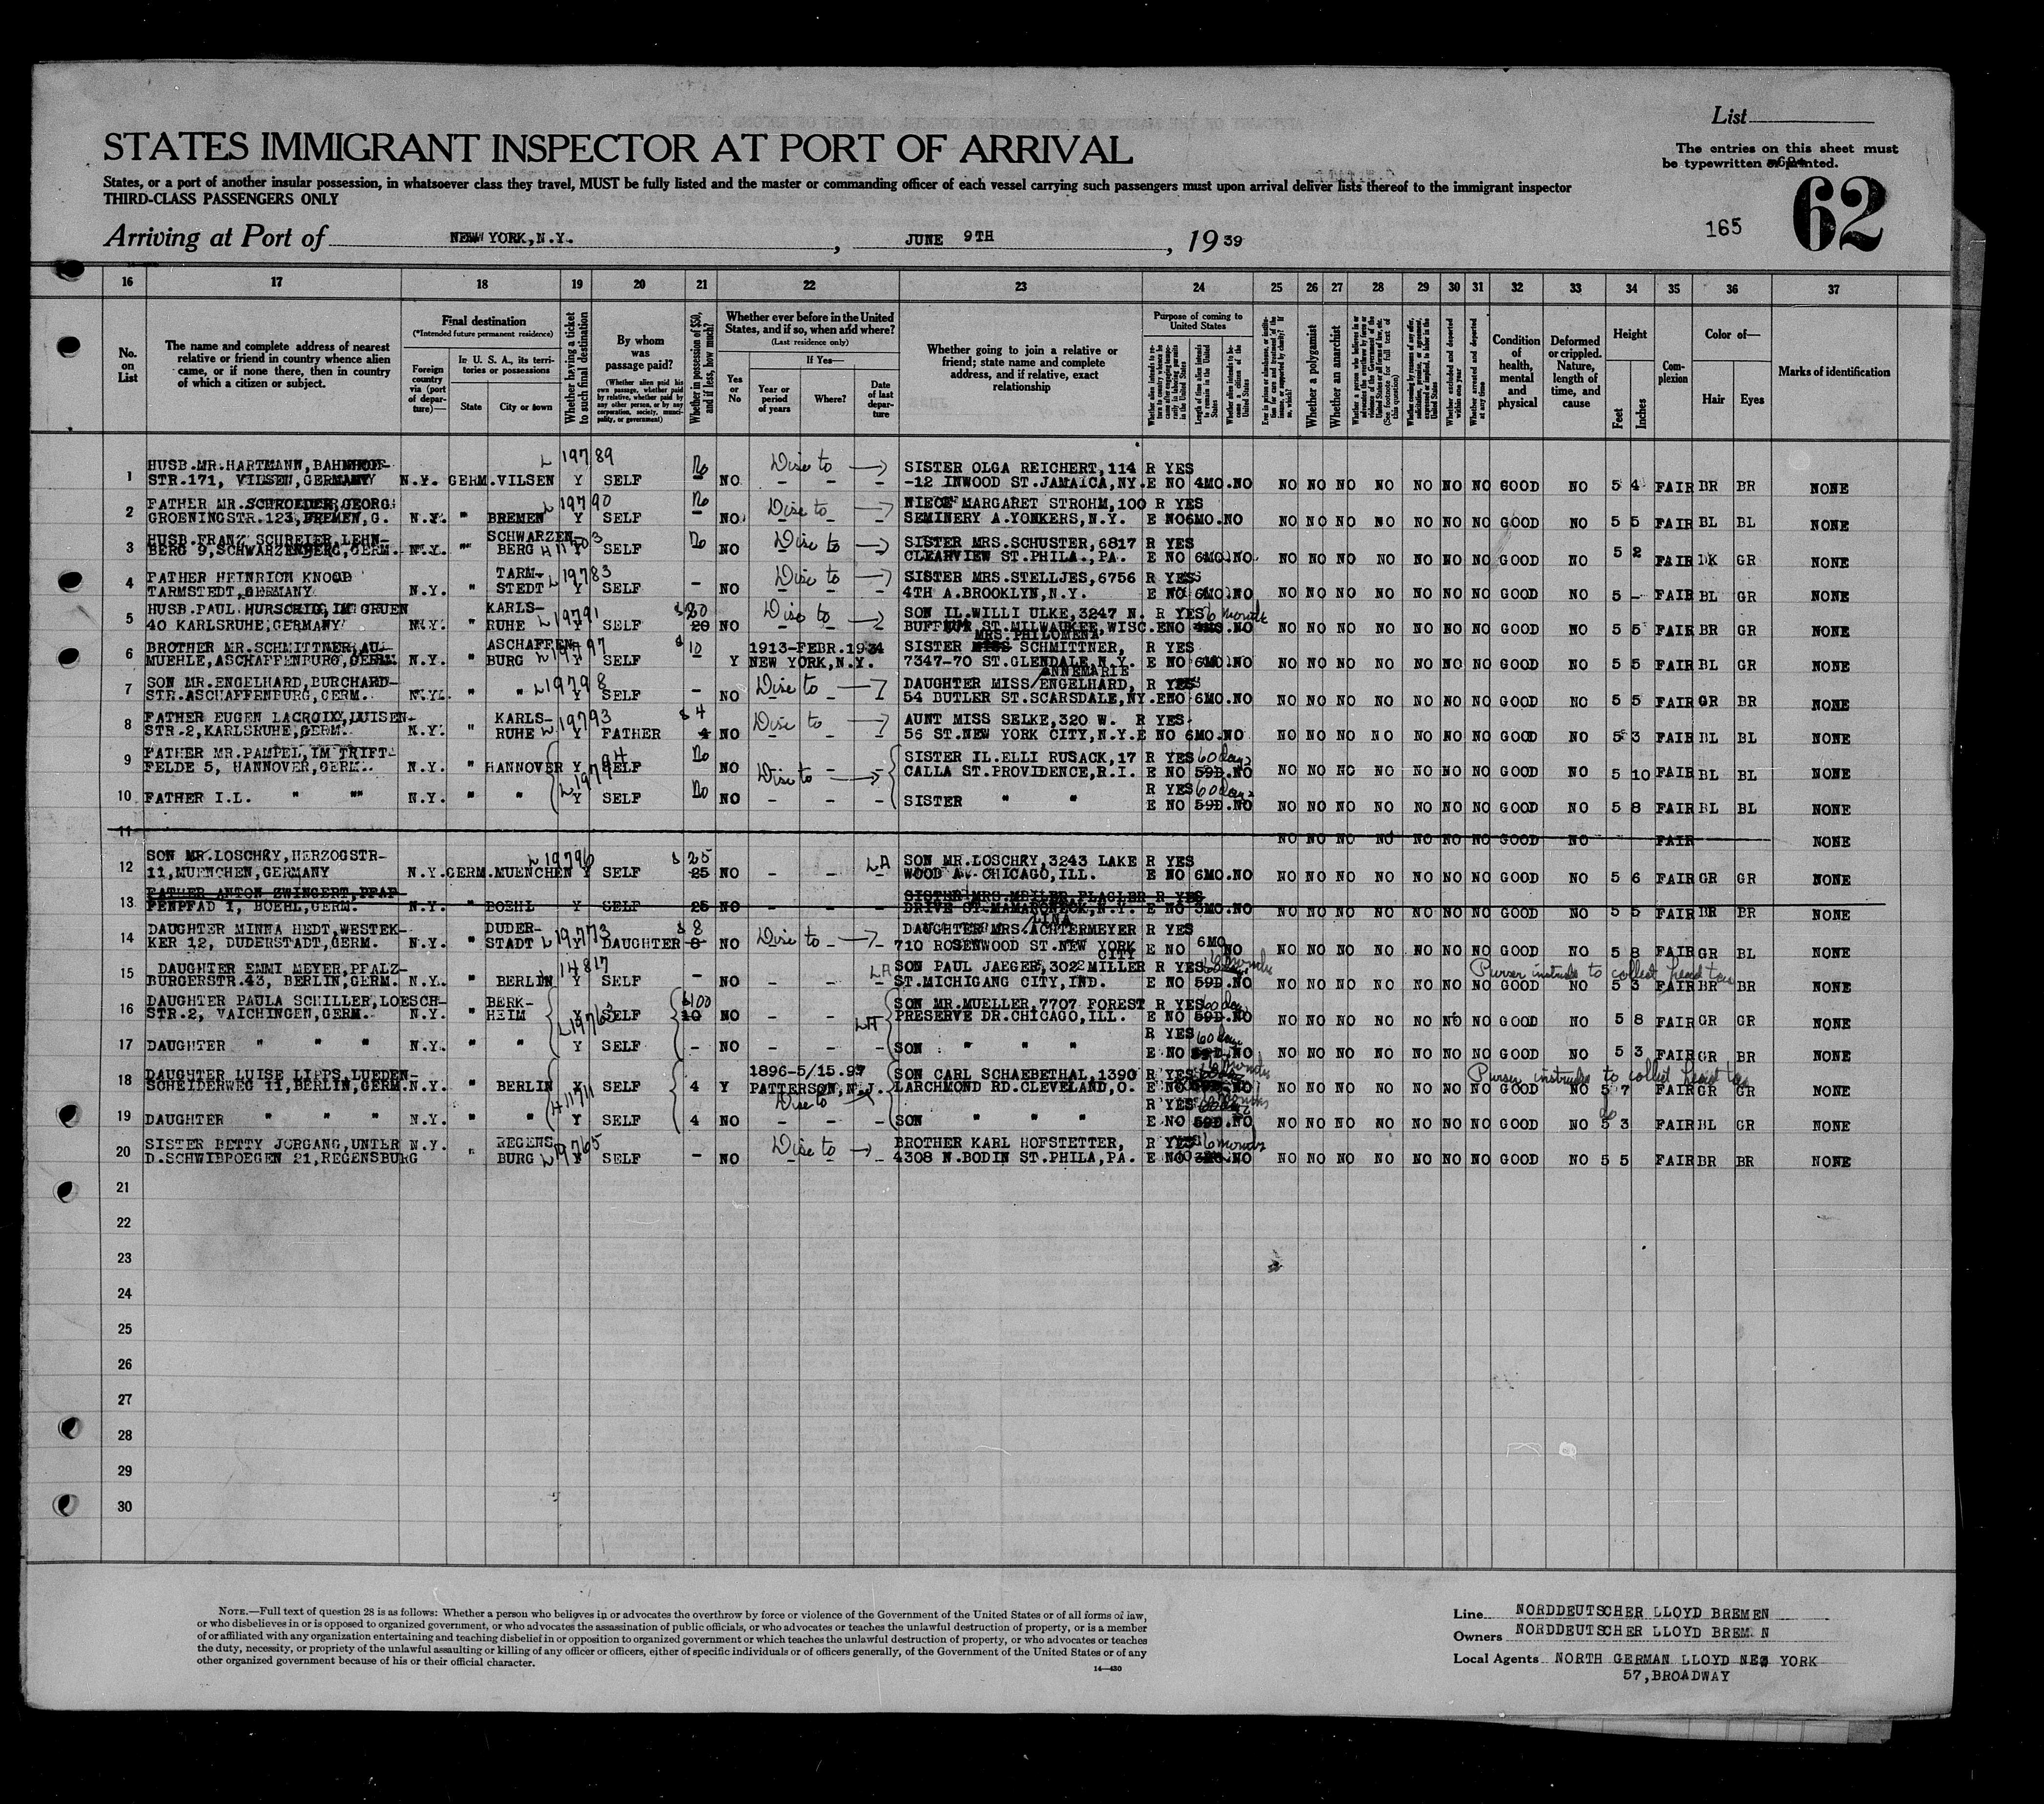 List
STATES IMMIGRANT INSPECTOR AT PORT OF ARRIVAL
The entries on this sheet must
be typewritten or printed.
States, or a port of another insular possession, in whatsoever class they travel, MUST be fully listed and the master or commanding officer of each vessel carrying such passengers must upon arrival deliver lists thereof to the immigrant inspector
THIRD-CLASS PASSENGERS ONLY
165 62
Arriving at Port of NEW YORK, N.Y. , JUNE 9TH , 1939
16 17 18 19 20 21 22 23 24 25 26 27 28 29 30 31 32 33 34 35 36 37
No. on List
The name and complete address of nearest relative or friend in country whence alien came, or if none there, then in country of which a citizen or subject.
Final destination
(*Intended future permanent residence)
Foreign country via (port of departure)—
In U. S. A., its territories or possessions
State City or town
Whether having a ticket to such final destination
By whom was passage paid?
(Whether alien paid his own passage, whether paid by relative, whether paid by any other person, or by any corporation, society, municipality, or government)
Whether in possession of $50, and if less, how much?
Whether ever before in the United States, and if so, when and where?
(Last residence only)
Yes or No
If Yes—
Year or period of years Where? Date of last departure
Whether going to join a relative or friend; state name and complete address, and if relative, exact relationship
Purpose of coming to United States
Whether a polygamist
Whether an anarchist
Condition of health, mental and physical
Deformed or crippled. Nature, length of time, and cause
Height
Feet Inches
Complexion
Color of—
Hair Eyes
Marks of identification
L 19789
1 HUSB.MR.HARTMANN,BAHNHOF- No Dise to SISTER OLGA REICHERT,114 R YES
STR.171, VILSEN,GERMANY N.Y. GERM.VILSEN Y SELF - NO - - - -12 INWOOD ST.JAMAICA,NY. E NO 4MO.NO NO NO NO NO NO NO NO GOOD NO 5 4 FAIR BR BR NONE
L 19790
2 FATHER MR.SCHROEDER,GEORG. No Dise to NIECE MARGARET STROHM,100 R YES
GROENINGSTR.123,BREMEN,G. N.Y. " BREMEN Y SELF - NO - - - SEMINERY A.YONKERS,N.Y. E NO 6MO.NO NO NO NO NO NO NO NO GOOD NO 5 5 FAIR BL BL NONE
3 HUSB.FRANZ SCHREIER,LEHN- SCHWARZEN- No Dise to SISTER MRS.SCHUSTER,6817 R YES
BERG 9,SCHWARZENBERG,GERM. N.Y. " BERG Y SELF NO CLEARVIEW ST.PHILA.,PA. E NO 6MO.NO NO NO NO NO NO NO NO GOOD NO 5 2 FAIR DK GR NONE
4 FATHER HEINRICH KNOOP TARM- L 19783 Dise to SISTER MRS.STELLJES,6756 R YES
TARMSTEDT,GERMANY N.Y. " STEDT Y SELF - NO 4TH A.BROOKLYN,N.Y. E NO 6MO.NO NO NO NO NO NO NO NO GOOD NO 5 - FAIR BL GR NONE
5 HUSB.PAUL HURSCHIG,IM GRUEN KARLS- L 19791 $20 Dise to SON IL.WILLI ULKE,3247 N. R YES 6 months
40 KARLSRUHE,GERMANY N.Y. " RUHE Y SELF 20 NO BUFFUM ST.MILWAUKEE,WISC. E NO NO NO NO NO NO NO NO NO GOOD NO 5 5 FAIR BR GR NONE
MRS.PHILOMENA,
6 BROTHER MR.SCHMITTNER,AU- ASCHAFFEN- L 19797 $10 1913-FEBR.1934 SISTER MISS SCHMITTNER, R YES
MUEHLE,ASCHAFFENBURG,GERM. N.Y. " BURG Y SELF - Y NEW YORK,N.Y. 7347-70 ST.GLENDALE,N.Y. E NO 6MO.NO NO NO NO NO NO NO NO GOOD NO 5 5 FAIR BL GR NONE
ANNEMARIE
7 SON MR.ENGELHARD,BURCHARD- L 19798 Dise to DAUGHTER MISS/ENGELHARD, R YES
STR.ASCHAFFENBURG,GERM. N.Y. " " Y SELF - NO 54 BUTLER ST.SCARSDALE,NY. E NO 6MO.NO NO NO NO NO NO NO NO GOOD NO 5 5 FAIR GR BR NONE
8 FATHER EUGEN LACROIX,LUISEN- KARLS- L 19793 $4 Dise to AUNT MISS SELKE,320 W. R YES
STR.2,KARLSRUHE,GERM. N.Y. " RUHE Y FATHER 4 NO 56 ST.NEW YORK CITY,N.Y. E NO 6MO.NO NO NO NO NO NO NO NO GOOD NO 5 3 FAIR BL BL NONE
9 FATHER MR.PAMPEL,IM TRIFT- No SISTER IL.ELLI RUSACK,17 R YES 60 days
FELDE 5, HANNOVER,GERM. N.Y. " HANNOVER Y SELF NO Dise to CALLA ST.PROVIDENCE,R.I. E NO 59D.NO NO NO NO NO NO NO NO GOOD NO 5 10 FAIR BL BL NONE
L 19794 R YES 60 days
10 FATHER I.L. " "" N.Y. " " Y SELF No NO - - - SISTER " " E NO 59D.NO NO NO NO NO NO NO NO GOOD NO 5 8 FAIR BL BL NONE
11 NO NO NO NO NO NO NO GOOD NO FAIR NONE
12 SON MR.LOSCHRY,HERZOGSTR- L 19796 $25 LA SON MR.LOSCHRY,3243 LAKE R YES
11,MUENCHEN,GERMANY N.Y. GERM.MUENCHEN Y SELF 25 NO - - WOOD AV. CHICAGO,ILL. E NO 6MO.NO NO NO NO NO NO NO NO GOOD NO 5 6 FAIR GR GR NONE
13 FATHER ANTON ZWINGERT,PFAP- SISTER MRS.MEYLER,FLAGLER R YES
FENPFAD 1, BOEHL,GERM. N.Y. " BOEHL Y SELF 25 NO DRIVE ST.MAMARONECK,N.Y. E NO 3MO.NO NO NO NO NO NO NO NO GOOD NO 5 5 FAIR BR BR NONE
LINA
14 DAUGHTER MINNA HEDT,WESTEK- DUDER- L 19773 $8 Dise to DAUGHTER MRS./ACHTERMEYER R YES
KER 12, DUDERSTADT,GERM. N.Y. " STADT Y DAUGHTER 8 NO 710 ROSENWOOD ST.NEW YORK CITY E NO 6MO NO NO NO NO NO NO NO NO GOOD NO 5 8 FAIR GR BL NONE
15 DAUGHTER EMMI MEYER,PFALZ- 14817 LA SON PAUL JAEGER,302 MILLER R YES 6 months Purser instructs to collect head tax
BURGERSTR.43, BERLIN,GERM. N.Y. " BERLIN Y SELF - NO - - - ST.MICHIGANG CITY,IND. E NO 59D.NO NO NO NO NO NO NO NO GOOD NO 5 3 FAIR BR BR NONE
16 DAUGHTER PAULA SCHILLER,LOESCH- BERK- $100 SON MR.MUELLER,7707 FOREST R YES 60 days
STR.2, VAICHINGEN,GERM. N.Y. " HEIM Y SELF 10 NO - - LA PRESERVE DR.CHICAGO,ILL. E NO 59D.NO NO NO NO NO NO NO NO GOOD NO 5 8 FAIR GR GR NONE
L 19763 R YES 60 days
17 DAUGHTER " " " N.Y. " " Y SELF - NO - - - SON " " " E NO 59D.NO NO NO NO NO NO NO NO GOOD NO 5 3 FAIR GR BR NONE
18 DAUGHTER LUISE LIPPS,LUEDEN- 1896-5/15.97 SON CARL SCHAEBETHAL,1390 R YES 6 months Purser instructs to collect head tax
SCHEIDERWEG 11,BERLIN,GERM. N.Y. " BERLIN Y SELF 4 Y PATTERSON,N.J. LARCHMOND RD.CLEVELAND,O. E NO NO NO NO NO NO NO NO NO GOOD NO 5 7 FAIR GR GR NONE
H 11711 Dise to R YES 6 months do
19 DAUGHTER " " " N.Y. " " Y SELF 4 NO - - - SON " " " E NO 59D.NO NO NO NO NO NO NO NO GOOD NO 5 3 FAIR BL GR NONE
20 SISTER BETTY JORGANG,UNTER N.Y. REGENS- L 19765 Dise to BROTHER KARL HOFSTETTER, R YES 6 months
D.SCHWIBBOEGEN 21,REGENSBURG " BURG Y SELF - NO 4308 N.BODIN ST.PHILA,PA. E NO NO NO NO NO NO NO NO NO GOOD NO 5 5 FAIR BR BR NONE
21
22
23
24
25
26
27
28
29
30
NOTE.—Full text of question 28 is as follows: Whether a person who believes in or advocates the overthrow by force or violence of the Government of the United States or of all forms of law,
or who disbelieves in or is opposed to organized government, or who advocates the assassination of public officials, or who advocates or teaches the unlawful destruction of property, or is a member
of or affiliated with any organization entertaining and teaching disbelief in or opposition to organized government or which teaches the unlawful destruction of property, or who advocates or teaches
the duty, necessity, or propriety of the unlawful assaulting or killing of any officer or officers, either of specific individuals or of officers generally, of the Government of the United States or of any
other organized government because of his or their official character.
14—430
Line NORDDEUTSCHER LLOYD BREMEN
Owners NORDDEUTSCHER LLOYD BREM N
Local Agents NORTH GERMAN LLOYD NEW YORK
57,BROADWAY